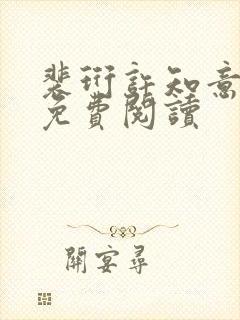 裴衍許知意
免費閱讀
開宴尋